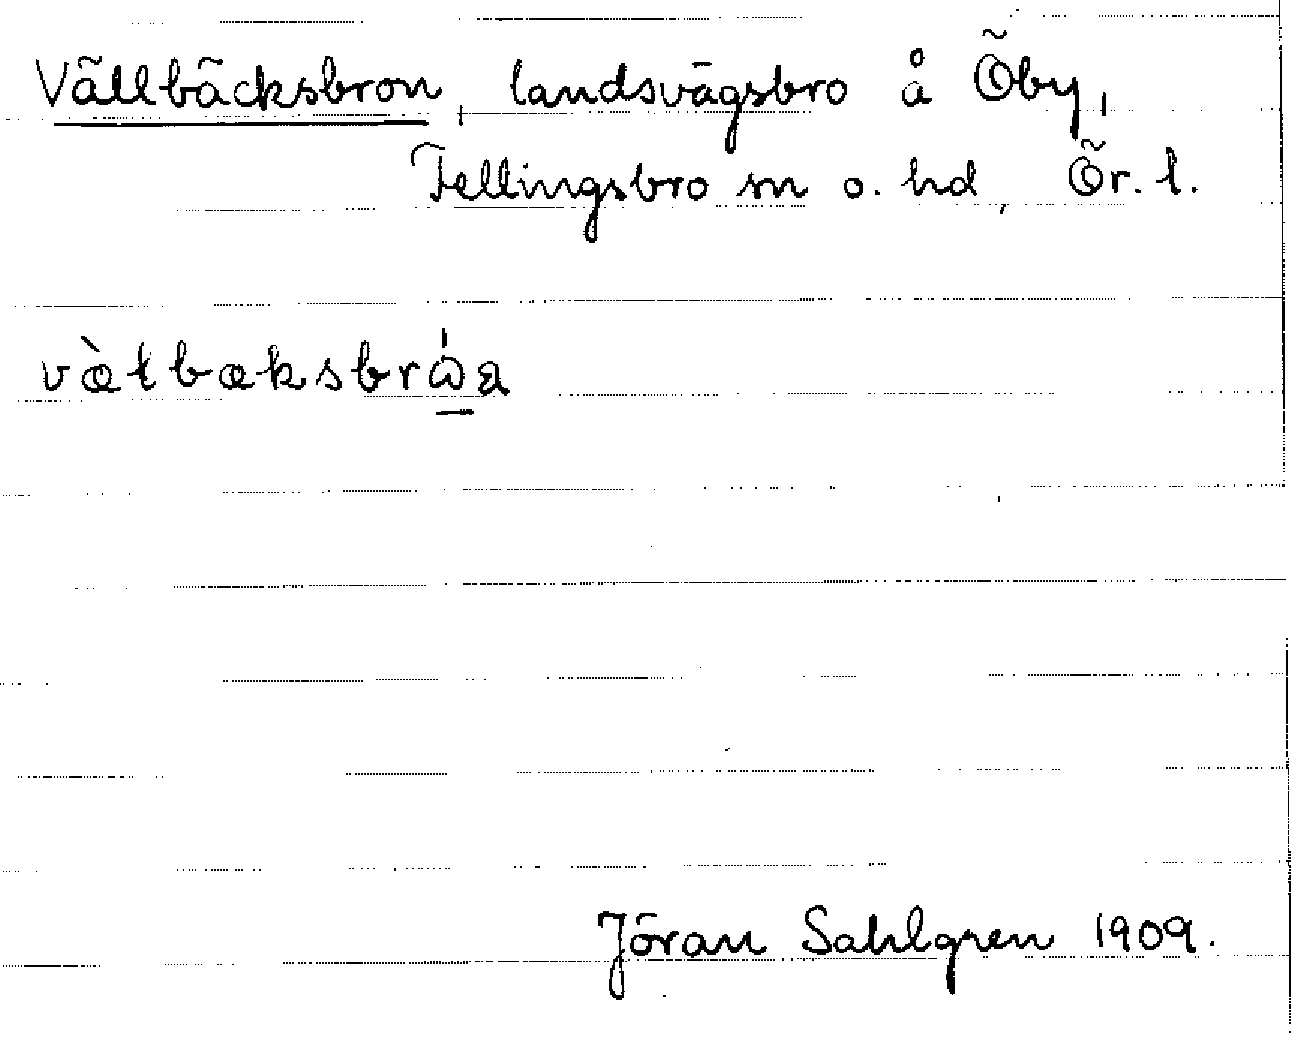 Vällbäcksbron, landsvägsbro å Öby,
Fellingsbro sn o. hd, Ör. l.
væ̀ɫbæksbrώ̲a
Jöran Sahlgren 1909.